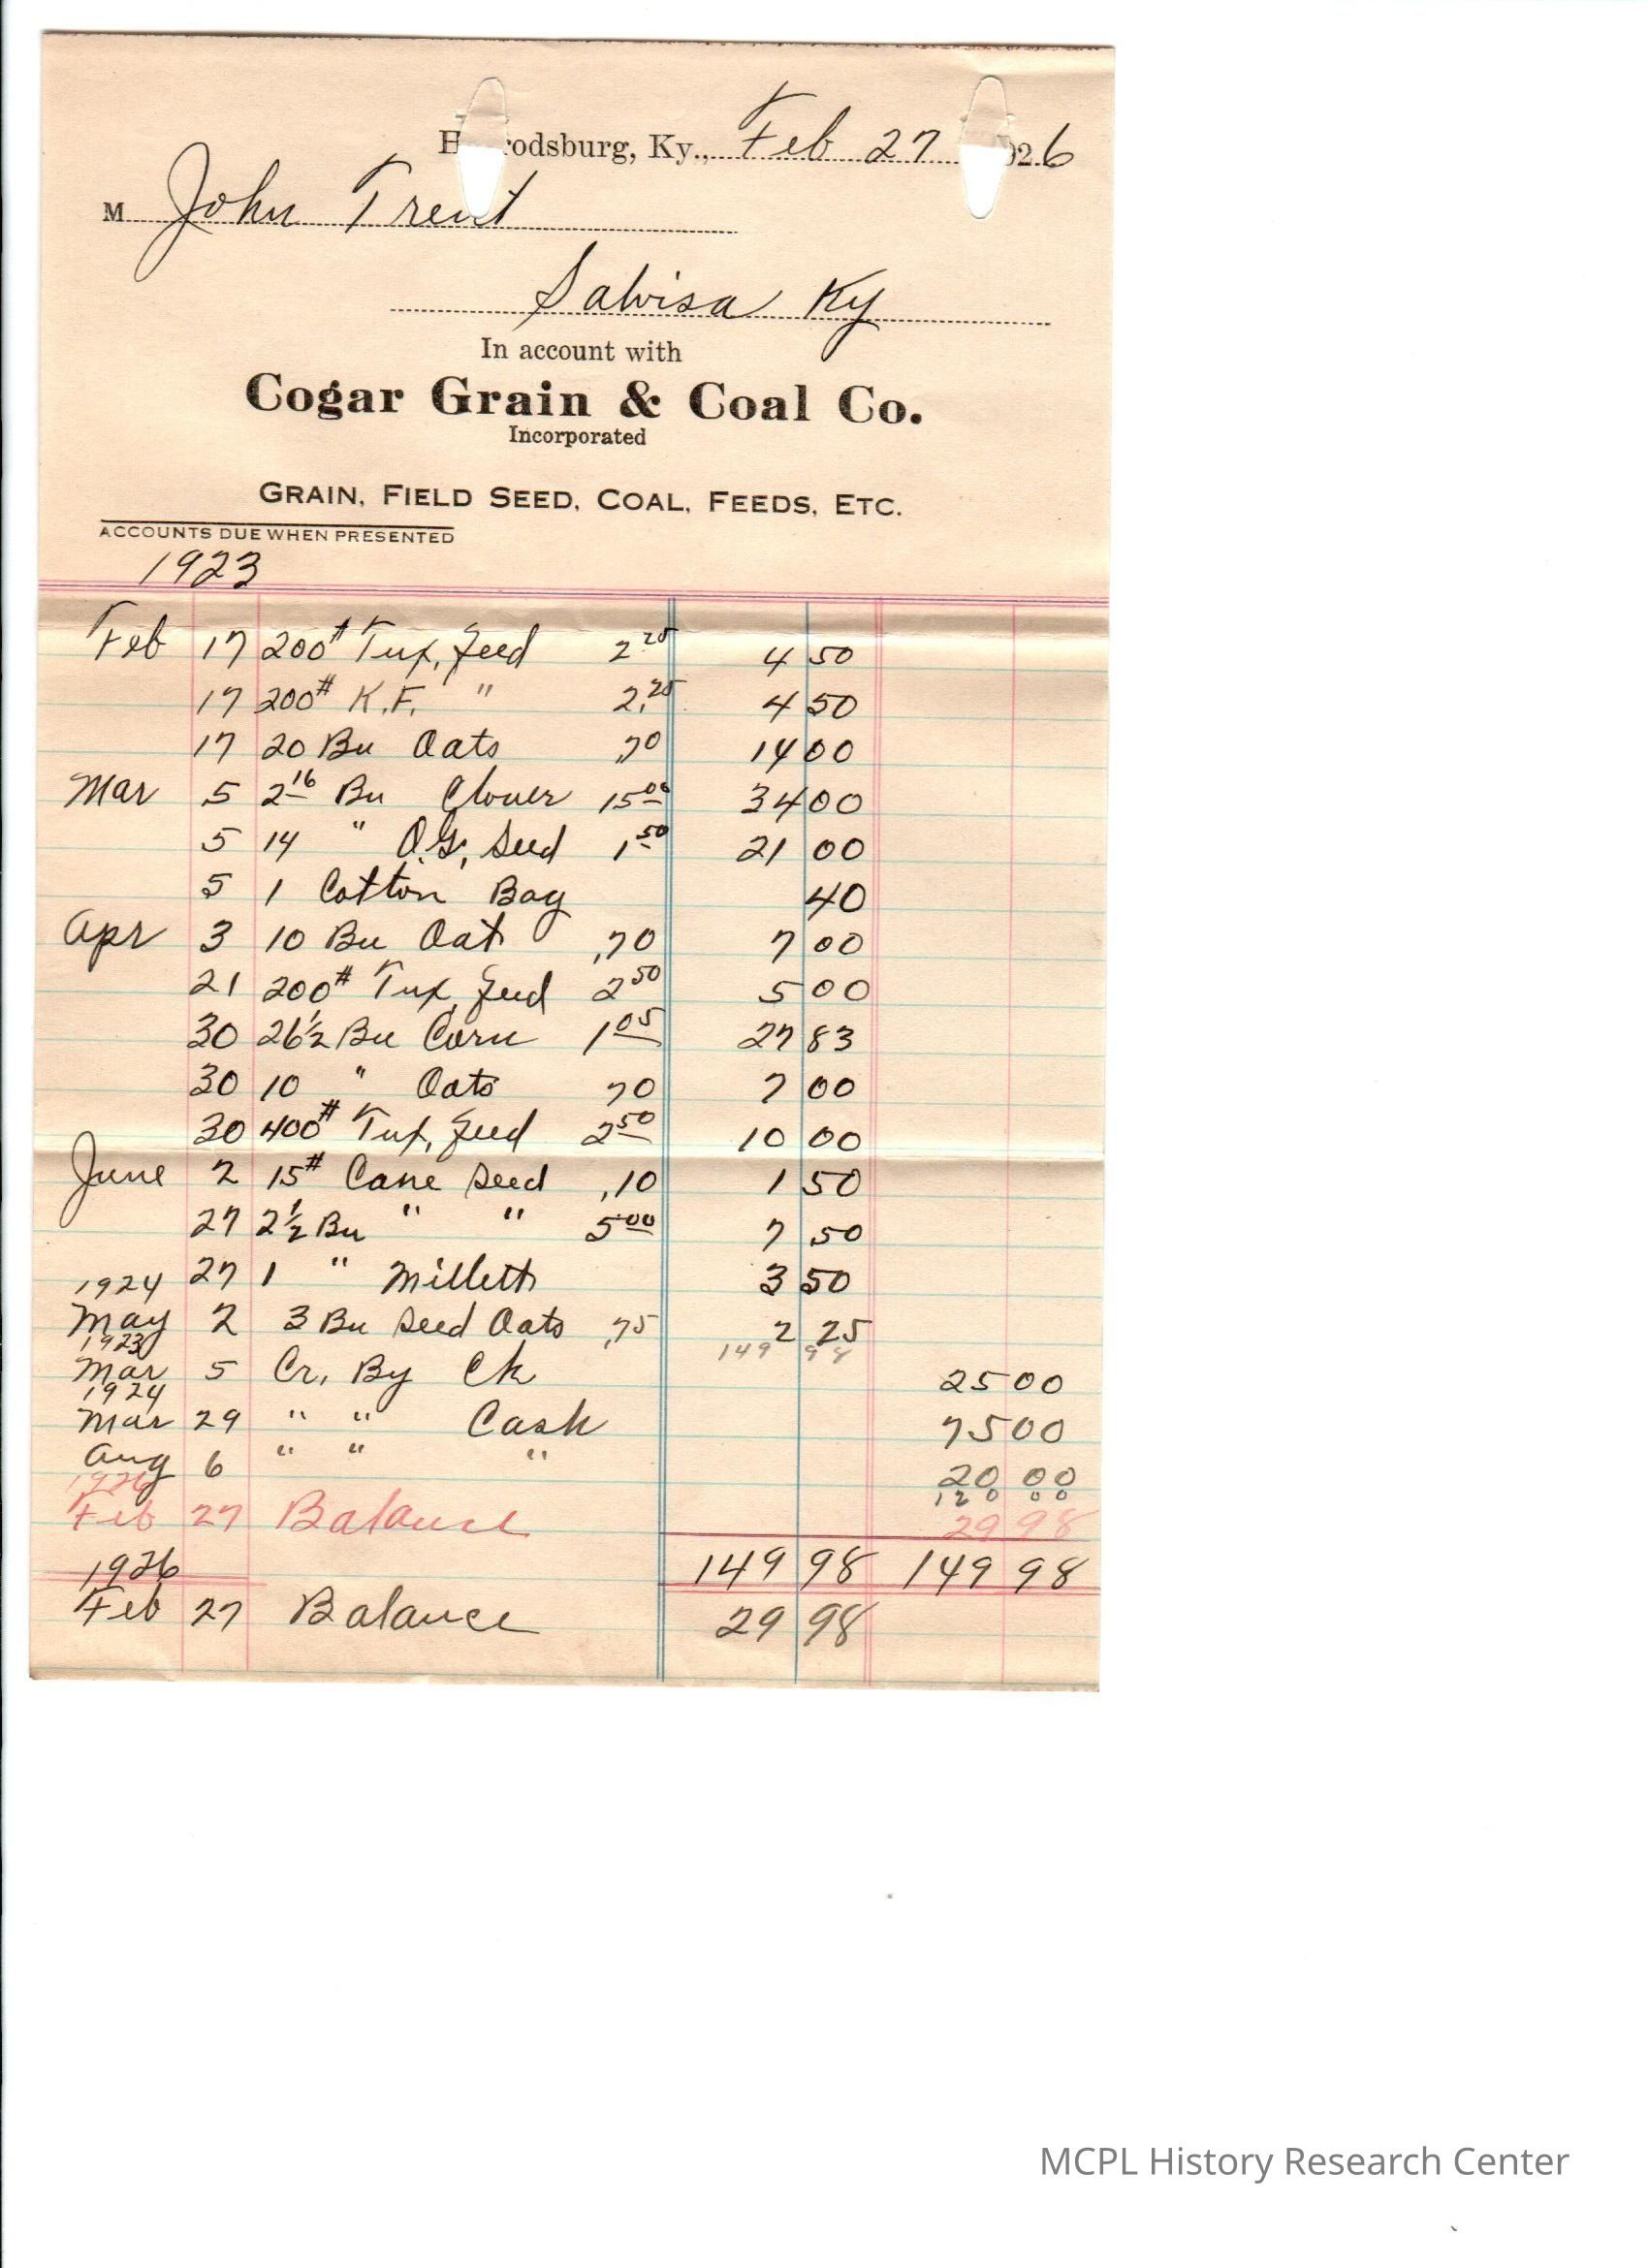 Harrodsburg, Ky., Feb 27 1926
M John Trent
Salvisa Ky
In account with
Cogar Grain & Coal Co.
Incorporated
GRAIN, FIELD SEED, COAL, FEEDS, ETC.
ACCOUNTS DUE WHEN PRESENTED
1923
Feb 17 200# Tux. Feed 2.25 4 50
17 200# K.F. " 2.25 4 50
17 20 Bu Oats 70 14 00
Mar 5 2 16 Bu Clover 15 00 34 00
5 14 " O.G. Seed 1 50 21 00
5 1 Cotton Bag 40
Apr 3 10 Bu Oat .70 7 00
21 200# Tux Feed 2 50 5 00
30 26 1/2 Bu Corn 1 05 27 83
30 10 " Oats 70 7 00
30 400# Tux. Feed 2 50 10 00
June 2 15# Cane Seed .10 1 50
27 2 1/2 Bu " " 5 00 7 50
27 1 " Millett 3 50
1924
May 2 3 Bu Seed Oats .75 2 25
149 98
1923
Mar 5 Cr. By Ck 25 00
1924
Mar 29 " " Cash 75 00
Aug 6 " " " 20 00
120 00
1926
Feb 27 Balance 29 98
149 98 149 98
1926
Feb 27 Balance 29 98
MCPL History Research Center